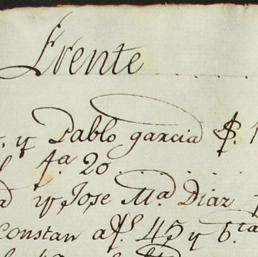 Frente
y Pablo garcia $. 1
f 4.a 20
y Jose Ma Diaz
Constan a fs. 45 y 6.ta